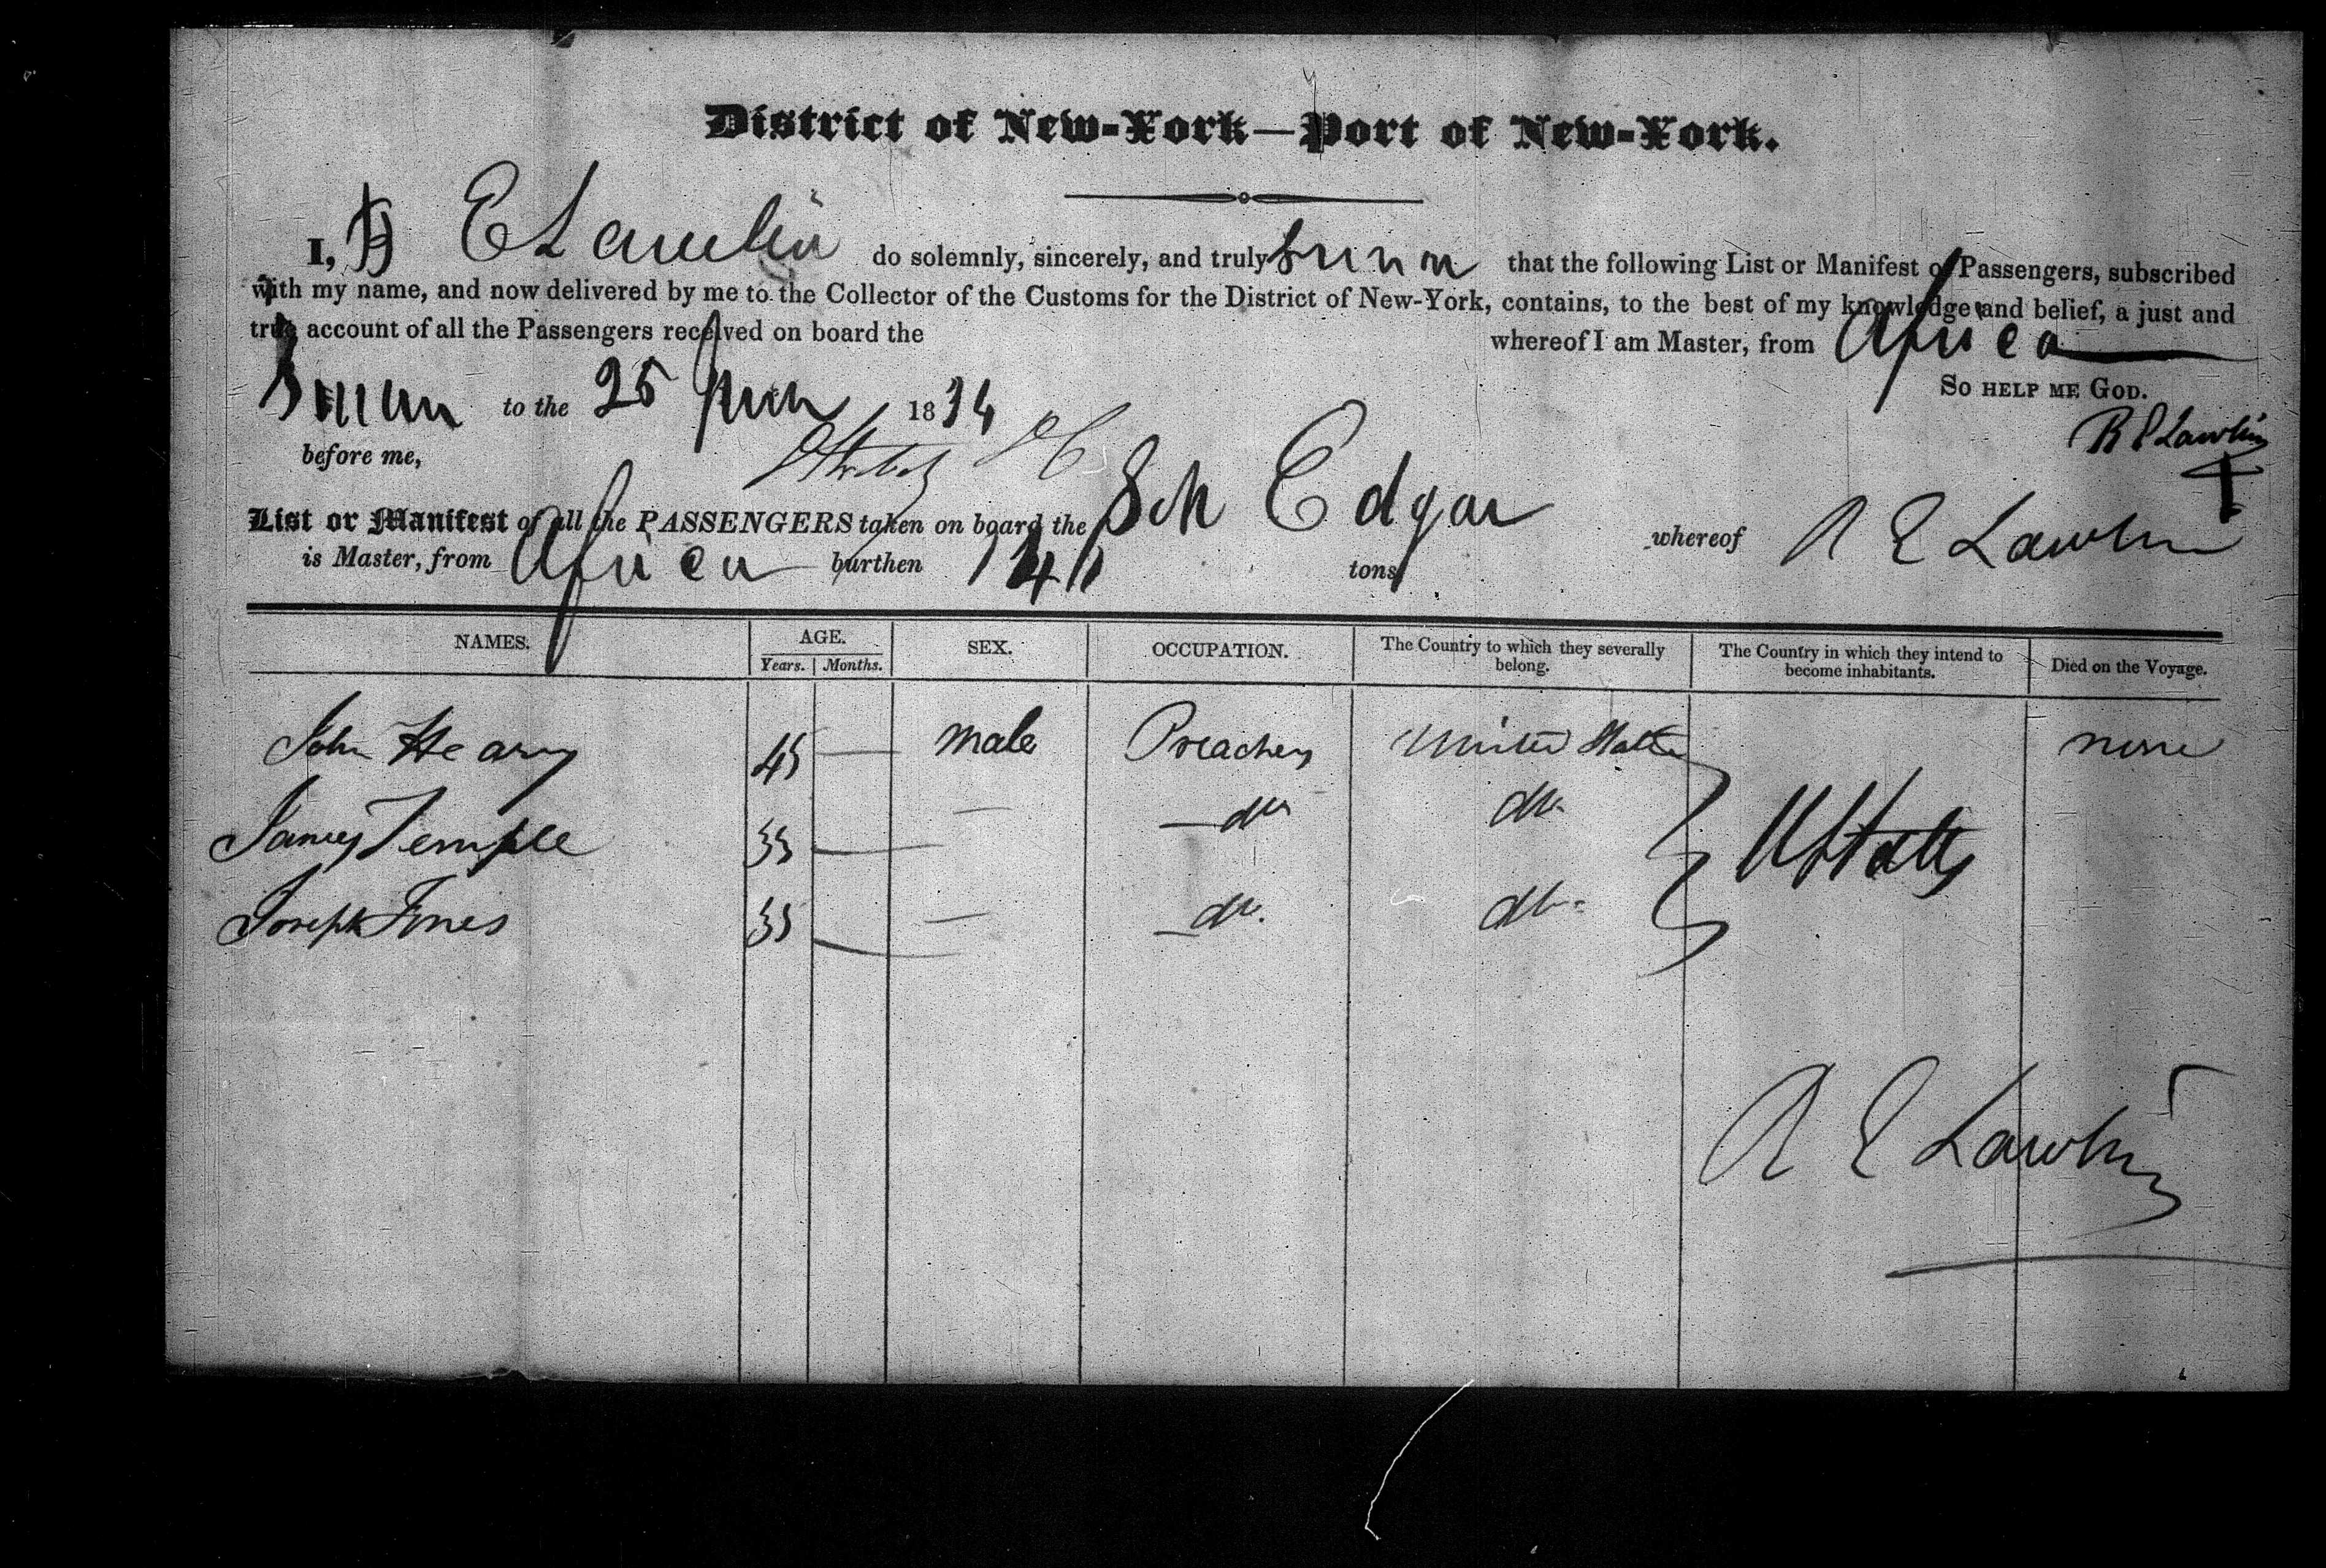 District of New-York—Port of New-York.
I, R E Lawlin do solemnly, sincerely, and truly swear that the following List or Manifest of Passengers, subscribed
with my name, and now delivered by me to the Collector of the Customs for the District of New-York, contains, to the best of my knowledge and belief, a just and
true account of all the Passengers received on board the whereof I am Master, from Africa
So help me God.
Sworn to the 25 June 1834
R E Lawlin
before me,
List or Manifest of all the PASSENGERS taken on board the Sch Edgar whereof R E Lawlin
is Master, from Africa burthen tons
NAMES. AGE. SEX. OCCUPATION. The Country to which they severally belong. The Country in which they intend to become inhabitants. Died on the Voyage.
Years. Months.
John 45 — male Preacher United States none
James Temple 33 — — do do U States
Joseph Jones 35 — — do. do
R E Lawlin